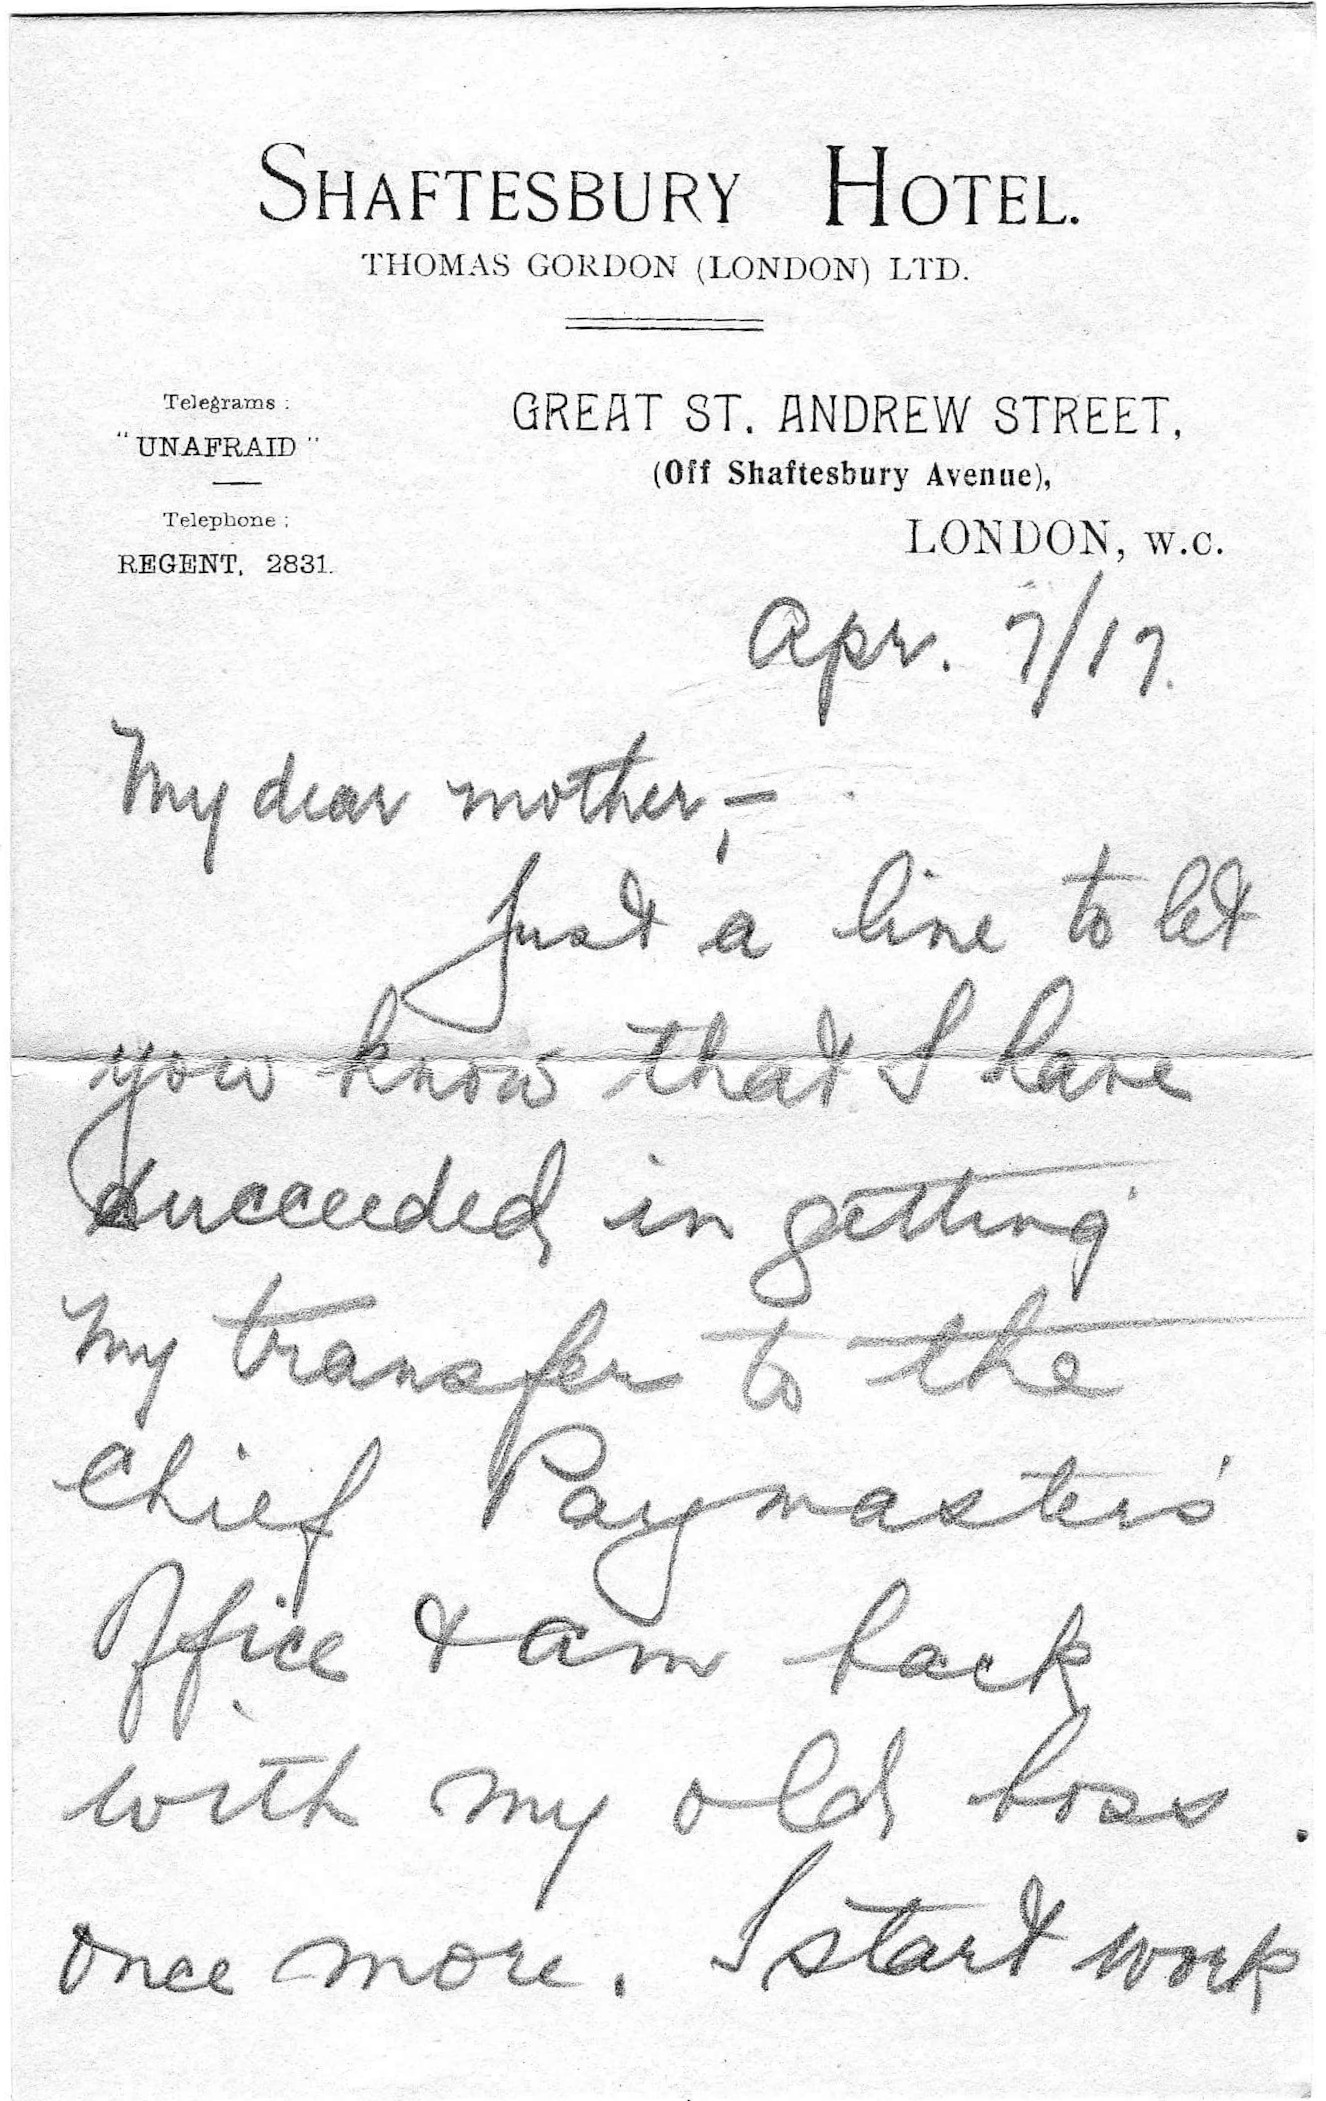 SHAFTESBURY HOTEL.
THOMAS GORDON (LONDON) LTD.
Telegrams:
"UNAFRAID"
Telephone:
REGENT, 2831.
GREAT ST. ANDREW STREET,
(Off Shaftesbury Avenue),
LONDON, W.C.
Apr. 7/17.
My dear mother,—
Just a line to let
you know that I have
succeeded in getting
my transfer to the
Chief Paymaster's
Office & am back
with my old boss
once more. I start work